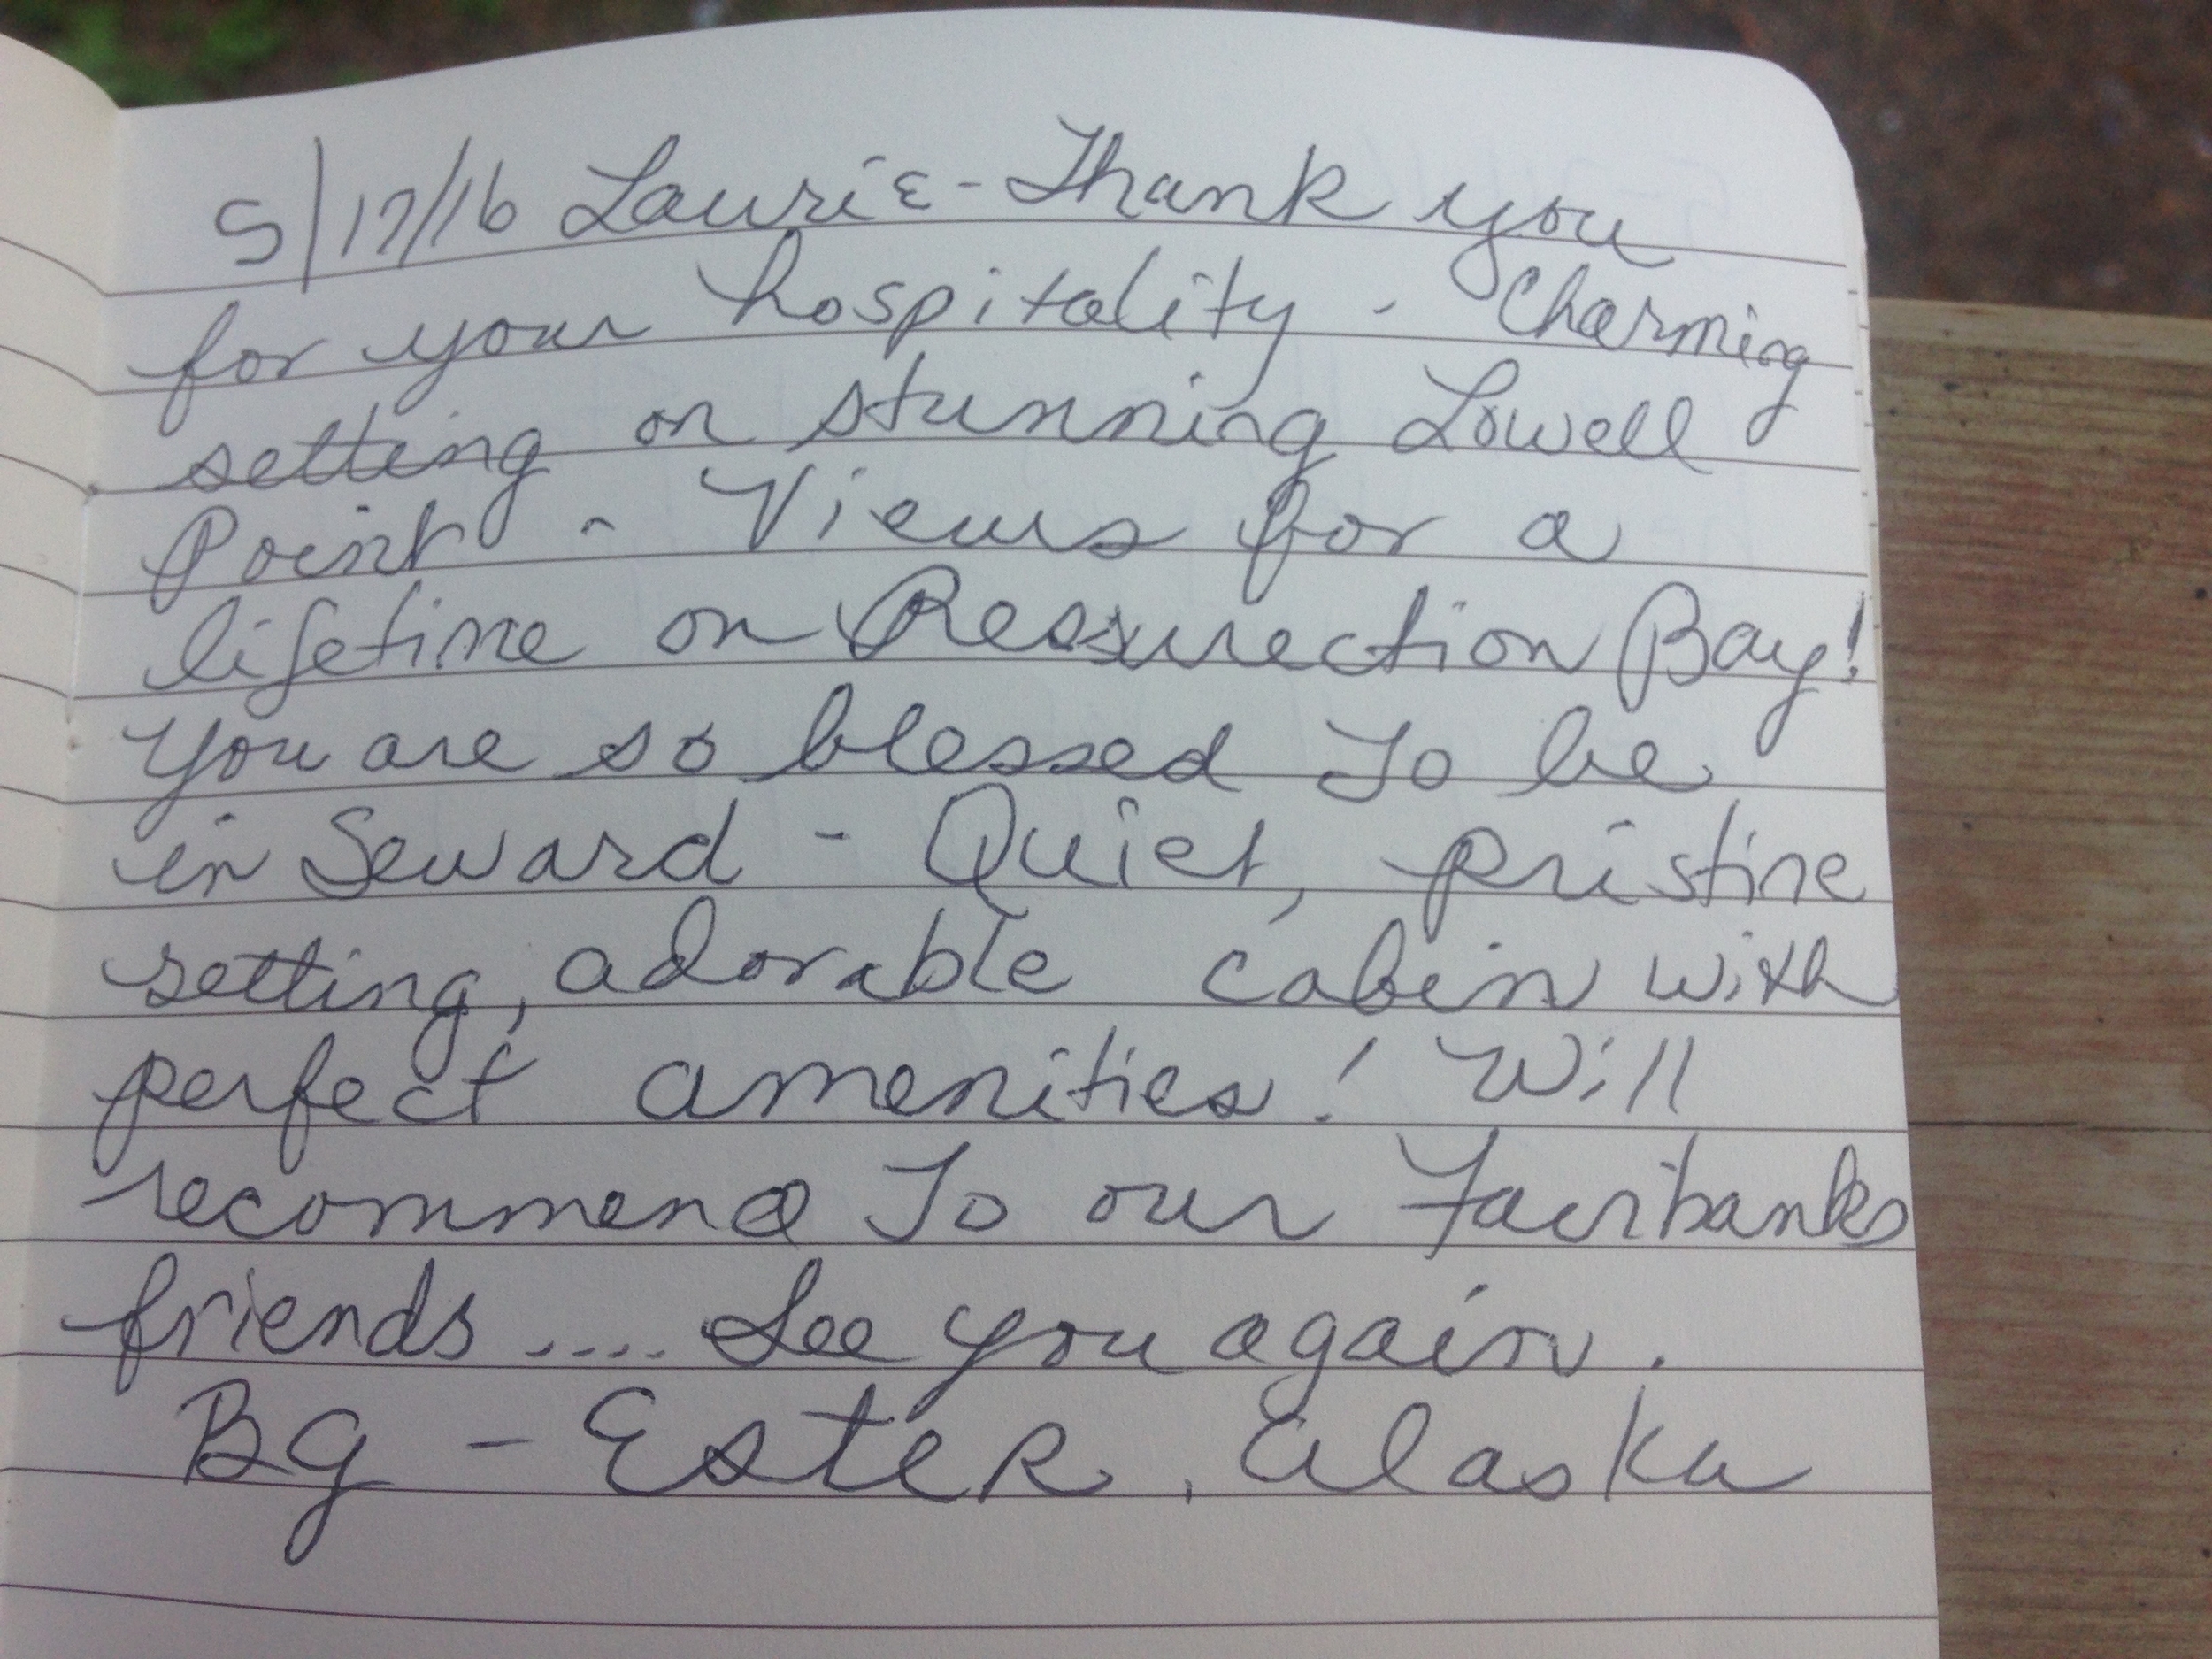 5/17/16 Laurie - Thank you
for your hospitality - Charming
setting on stunning Lowell
Point - Views for a
lifetime on Ressurection Bay!
You are so blessed To be
in Seward - Quiet, pristine
setting, adorable cabin with
perfect amenities! Will
recommend To our Fairbanks
friends .... See you again.
BG - Ester, Alaska